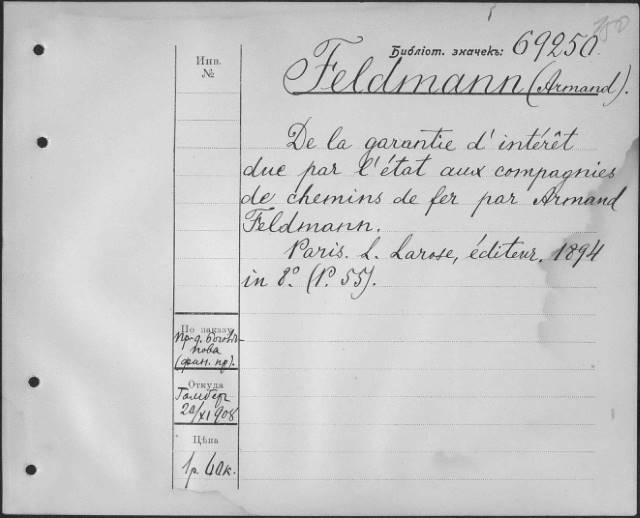 250
Библіот. значекъ: 69250.
Инв.
№
Feldmann (Armand).
De la garantie d'intérêt
due par l'état aux compagnies
de chemins de fer par Armand
Feldmann.
Paris. L. Larose, éditeur. 1894
in 8º. (P. 55).
По заказу
Пр-д.
(фин. пр).
Откуда
20/XI 908
Цѣна
1р. 60к.